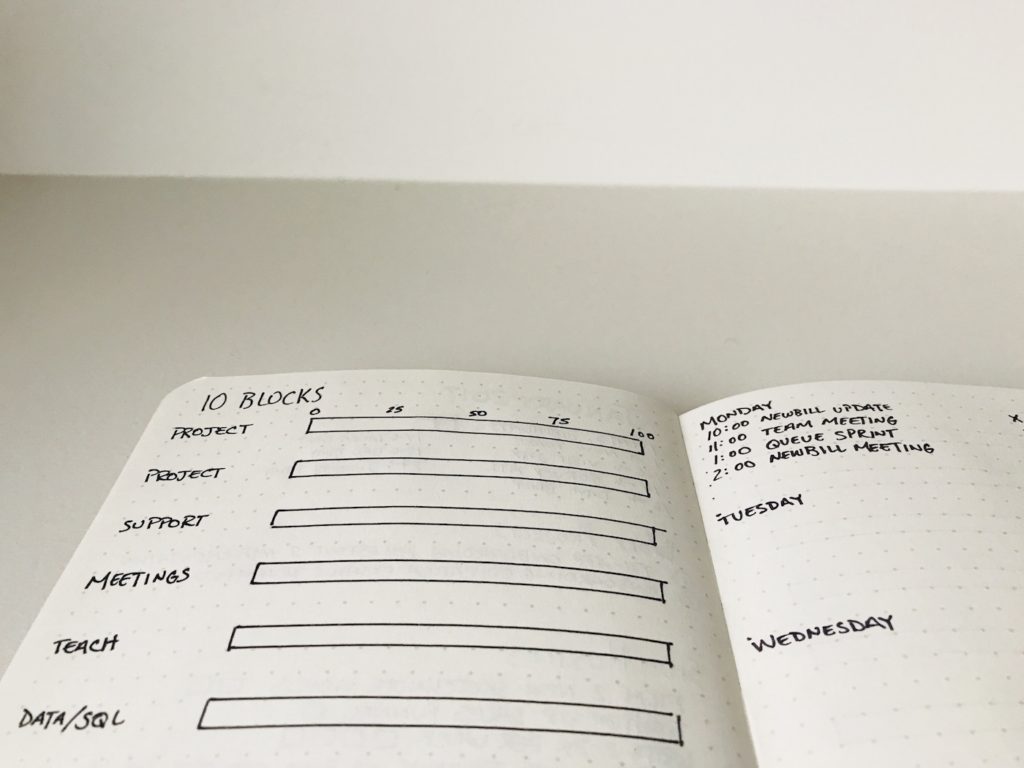 10 BLOCKS
0 25 50 75 100
PROJECT
PROJECT
SUPPORT
MEETINGS
TEACH
DATA/SQL
MONDAY
10:00 NEWBILL UPDATE
11:00 TEAM MEETING
1:00 QUEUE SPRINT
2:00 NEWBILL MEETING
TUESDAY
WEDNESDAY